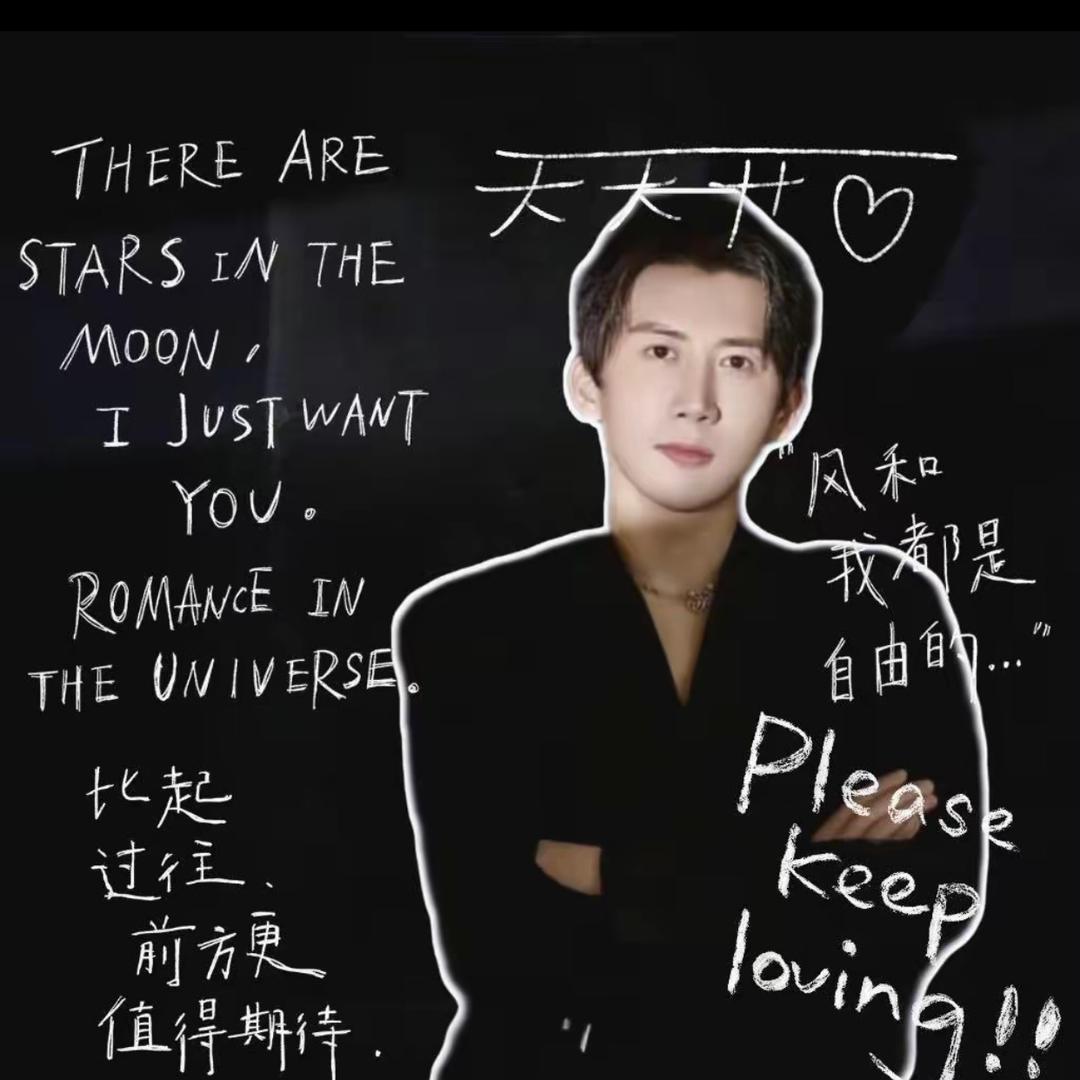 THERE ARE
STARS IN THE
MOON,
I JUST WANT
YOU。
ROMANCE IN
THE UNIVERSE。
比起
过往、
前方更
值得期待.
天天开♡
"风和
我都是
自由的..."
Please
keep
loving!!